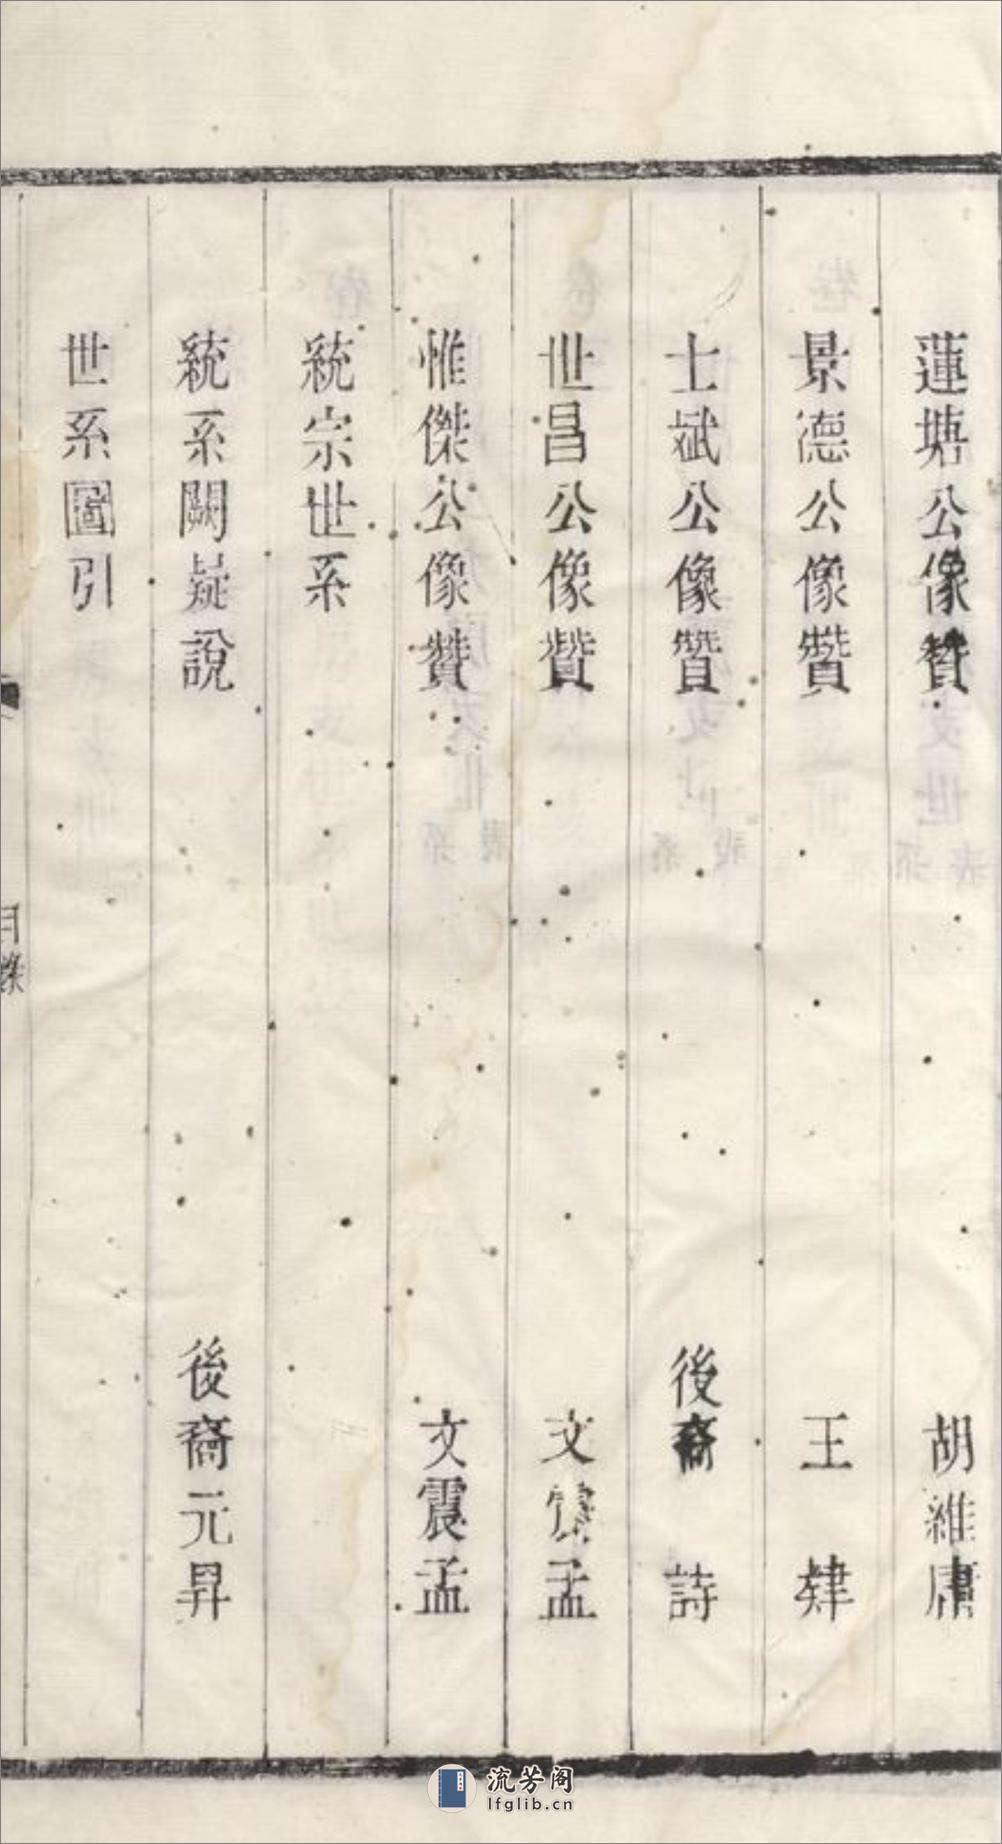 蓮塘公像贊 胡維庸
景德公像贊 王肄
士斌公像贊 後裔詩
世昌公像贊 文震孟
惟傑公像贊 文震孟
統宗世系
統系闕疑說 後裔元昇
世系圖引
目錄
流芳阁
lfglib.cn